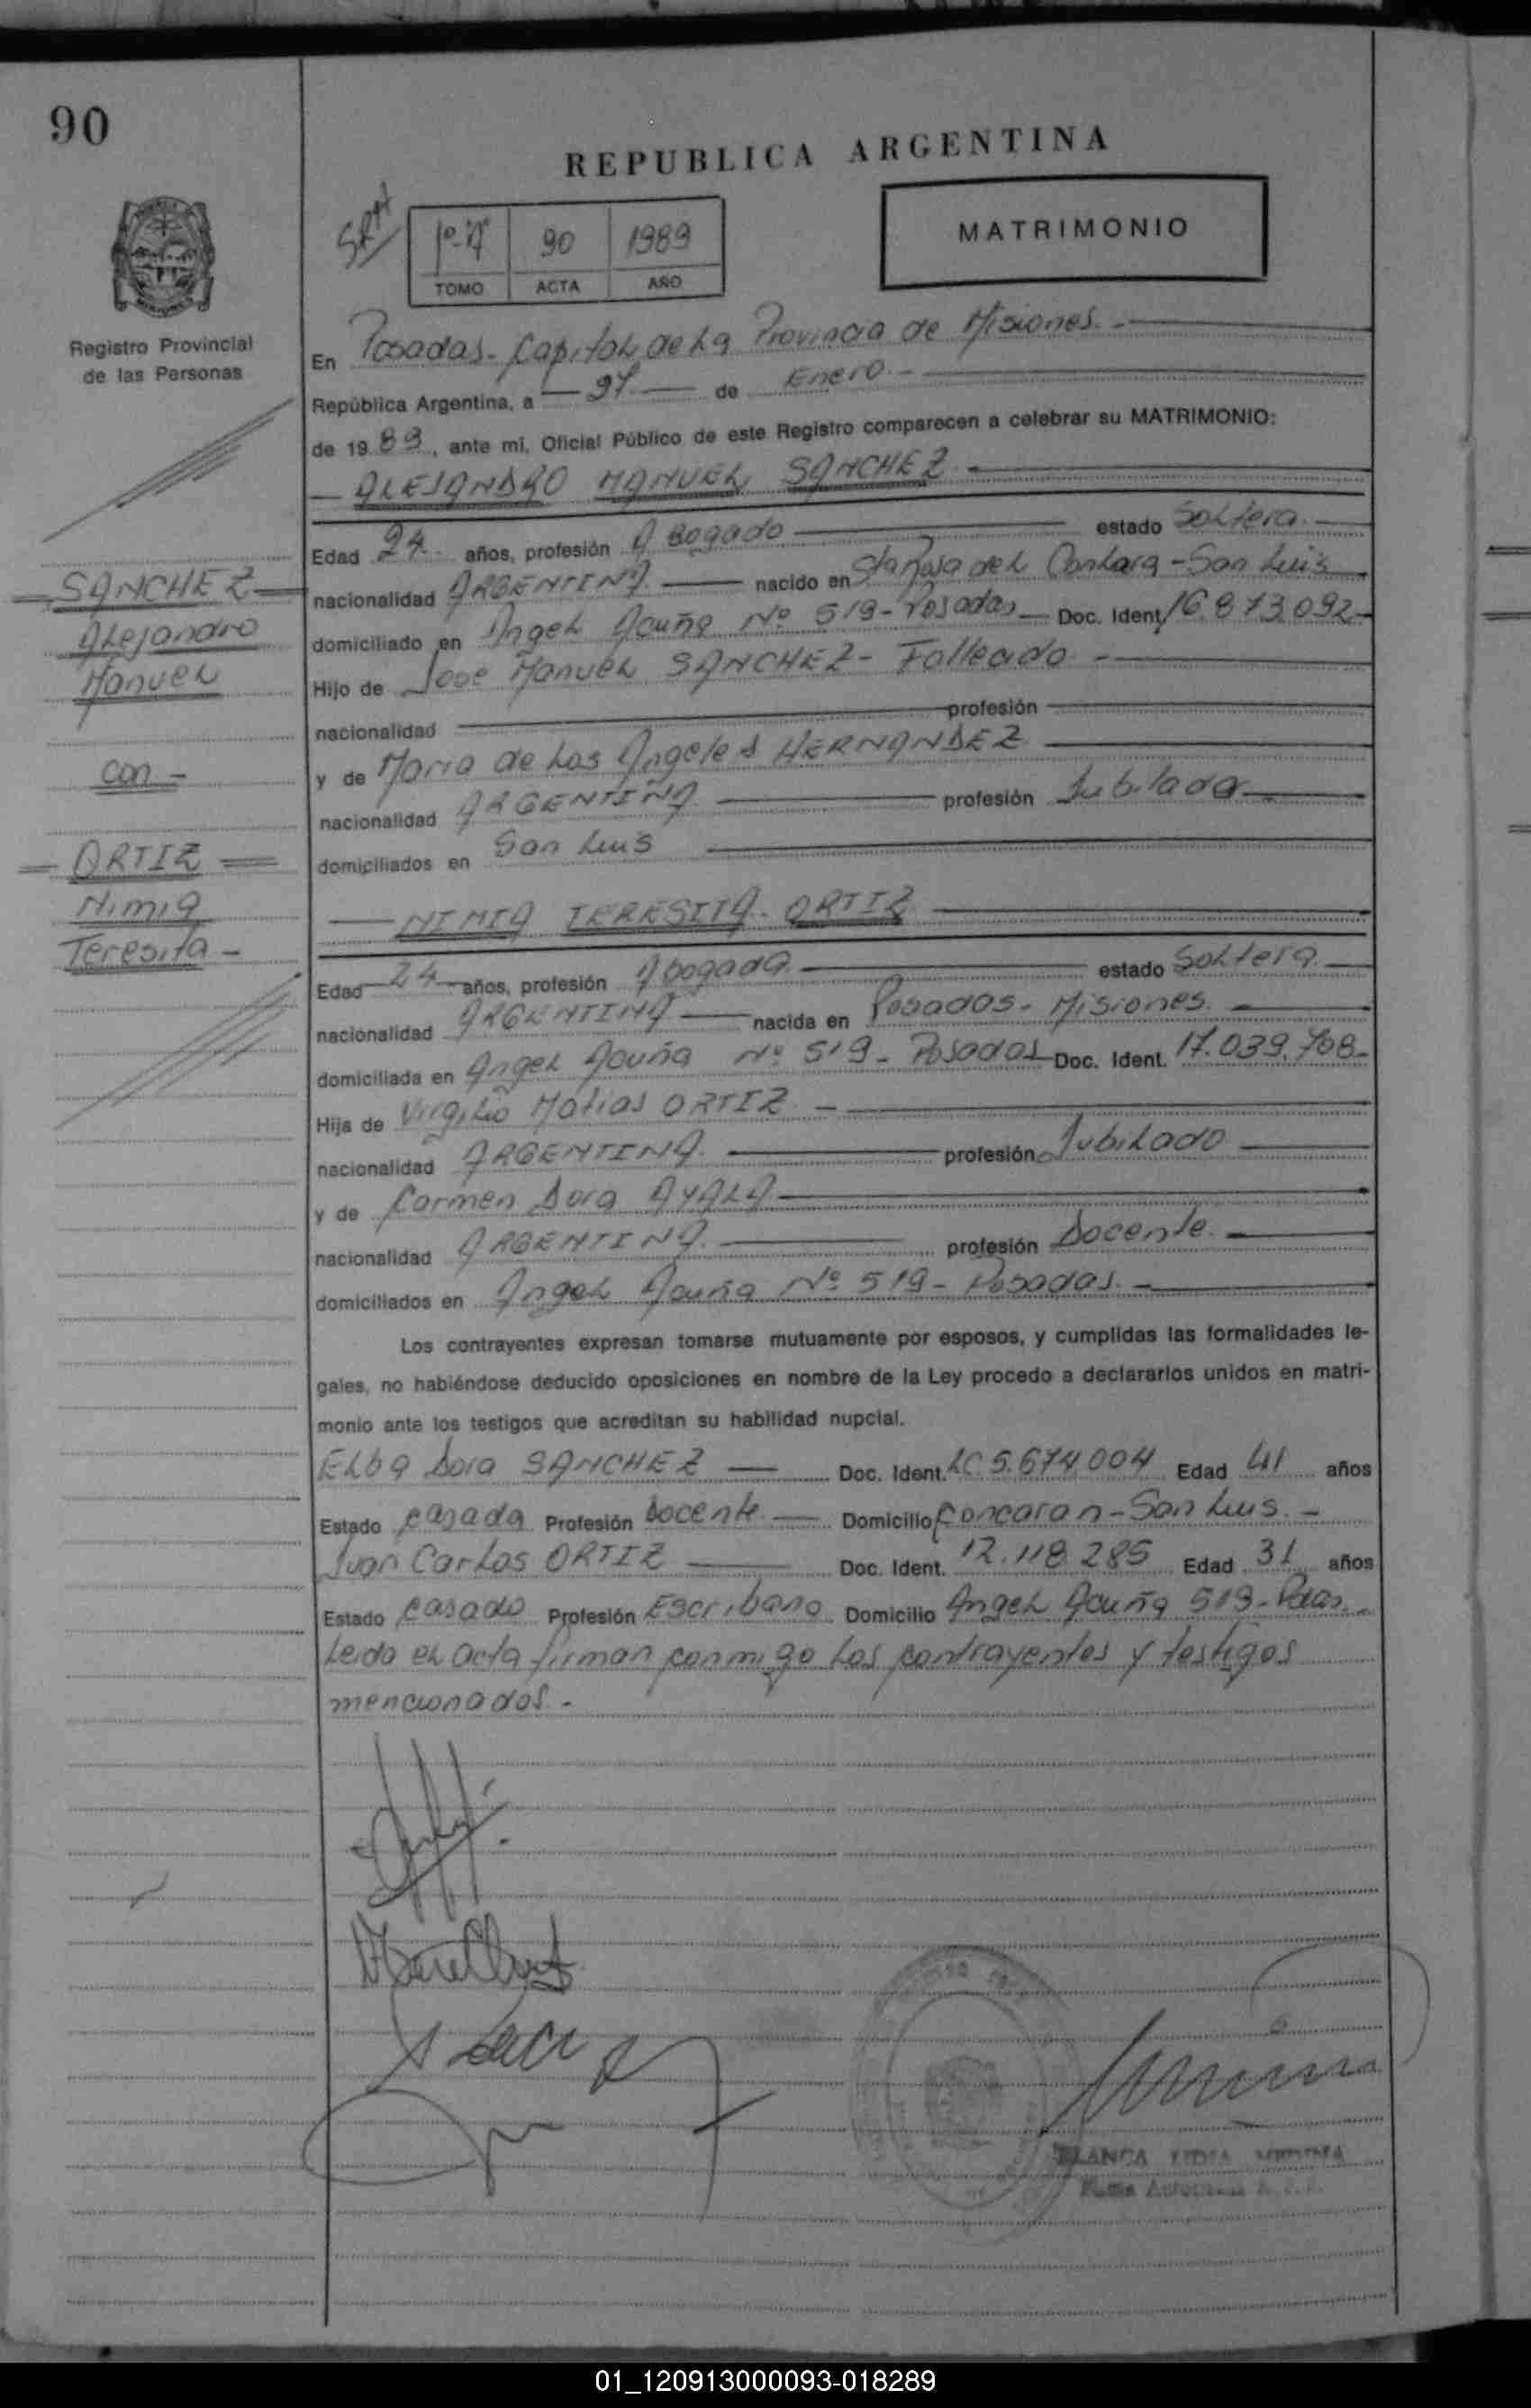 90
REPUBLICA ARGENTINA
1º-"A" 90 1989
TOMO ACTA AÑO
MATRIMONIO
Registro Provincial
de las Personas
En Posadas- Capital de La Provincia de Misiones.-
República Argentina, a - 27 - de Enero.-
de 19 89, ante mi, Oficial Público de este Registro comparecen a celebrar su MATRIMONIO:
- ALEJANDRO MANUEL SANCHEZ -
Edad 24 años, profesión Abogado estado Soltero.-
nacionalidad ARGENTINA nacido en Sta Rosa del Conlara - San Luis
domiciliado en Angel Acuña Nº 519 - Posadas Doc. Ident 16.873.092-
Hijo de Jose Manuel SANCHEZ - Fallecido -
nacionalidad profesión
y de Maria de Los Angeles HERNANDEZ
nacionalidad ARGENTINA profesión Jubilada
domiciliados en San Luis
SANCHEZ
Alejandro
Manuel
con -
ORTIZ
Nimia
Teresita -
NIMIA TERESITA ORTIZ
Edad 24 años, profesión Abogada estado Soltera
nacionalidad ARGENTINA nacida en Posadas - Misiones.
domiciliada en Angel Acuña Nº 519 - Posadas Doc. Ident. 17.039.708-
Hija de Virgilio Matias ORTIZ -
nacionalidad ARGENTINA profesión Jubilado
y de Carmen Dora AYALA
nacionalidad ARGENTINA. profesión Docente.
domiciliados en Angel Acuña Nº 519 - Posadas. -
Los contrayentes expresan tomarse mutuamente por esposos, y cumplidas las formalidades le-
gales, no habiéndose deducido oposiciones en nombre de la Ley procedo a declararlos unidos en matri-
monio ante los testigos que acreditan su habilidad nupcial.
Elba Dora SANCHEZ Doc. Ident. LC 5.674.004 Edad 41 años
Estado casada Profesión Docente Domicilio Concaran - San Luis. -
Juan Carlos ORTIZ Doc. Ident. 12.118.285 Edad 31 años
Estado casado Profesión Escribano Domicilio Angel Acuña 519 - Pdas.
Leida el acta firman conmigo Los contrayentes y testigos
mencionados. -
BLANCA LIDIA
Firma Autorizada
01_120913000093-018289